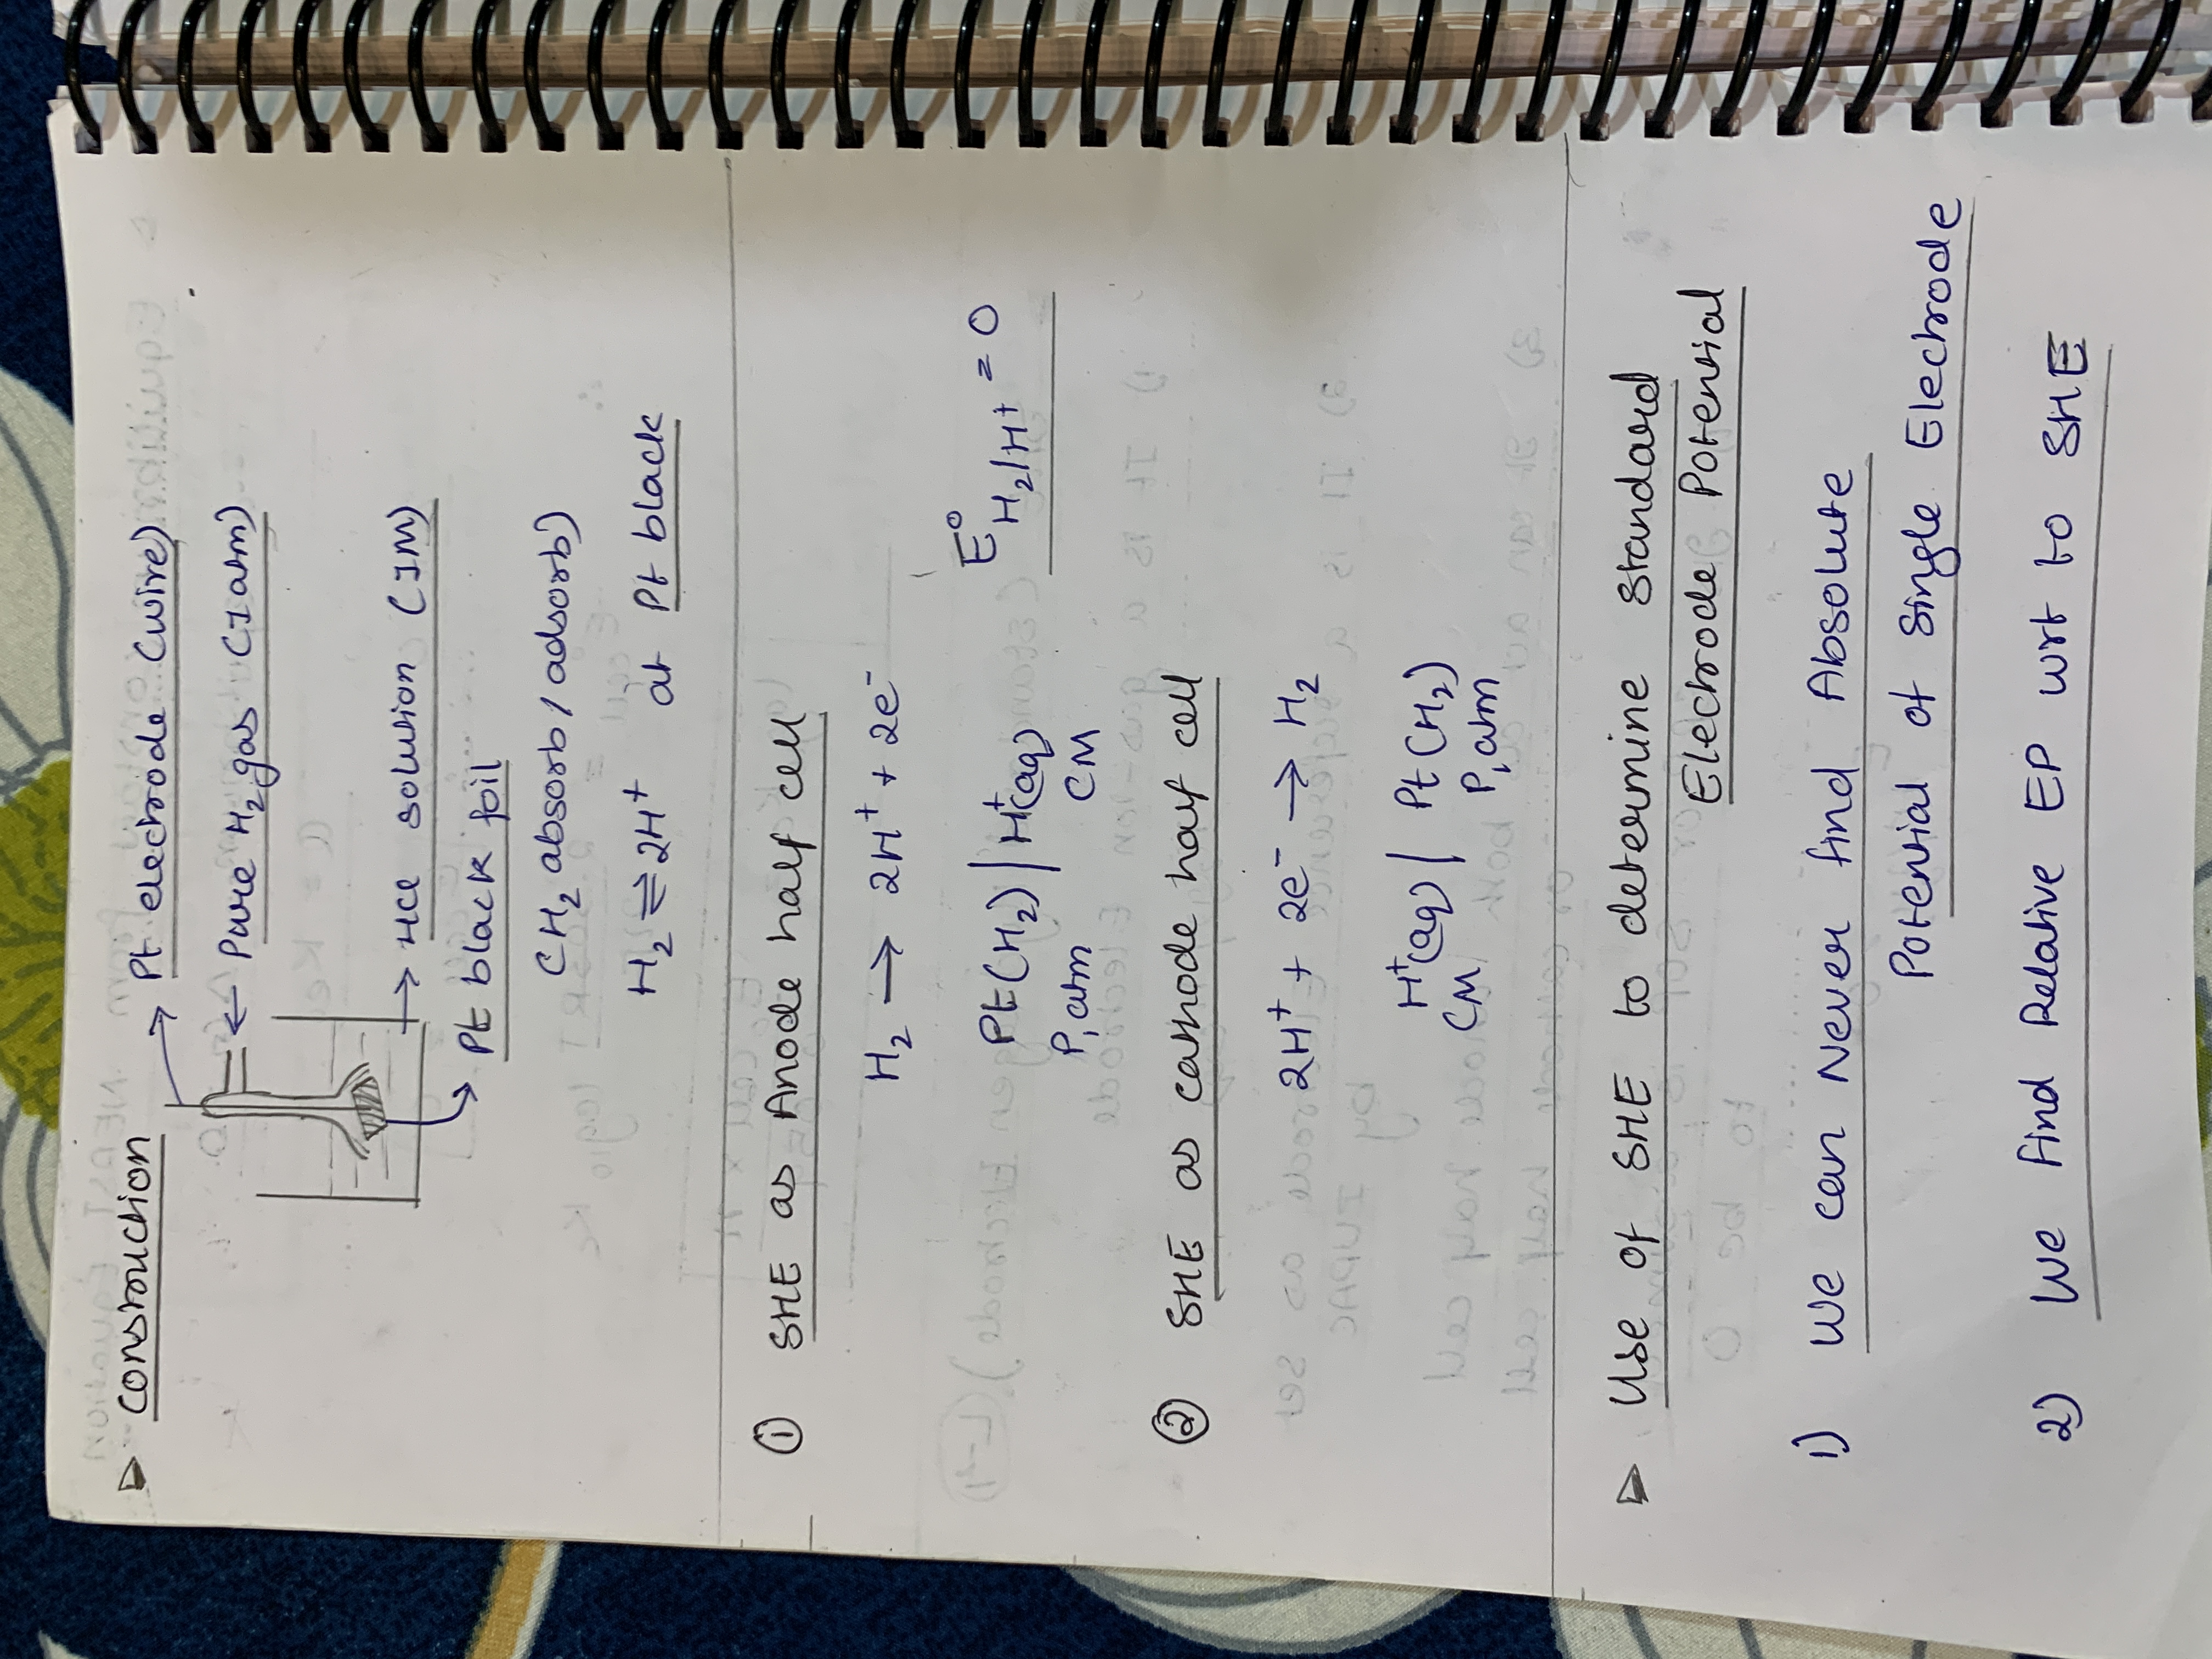 ▷ Construction
Pt electrode (wire)
← Pure H₂ gas (1 atm)
→ HCl solution (1M)
Pt black foil
(H₂ absorb / adsorb)
H₂ ⇌ 2H⁺ at Pt black
① SHE as Anode half cell
H₂ → 2H⁺ + 2e⁻
Pt(H₂) | H⁺(aq) E° H₂/H⁺ = 0
P, atm CM
② SHE as cathode half cell
2H⁺ + 2e⁻ → H₂
H⁺(aq) | Pt(H₂)
CM P, atm
▷ Use of SHE to determine standard
Electrode Potential
1) We can Never find Absolute
Potential of Single Electrode
2) We find Relative EP wrt to SHE